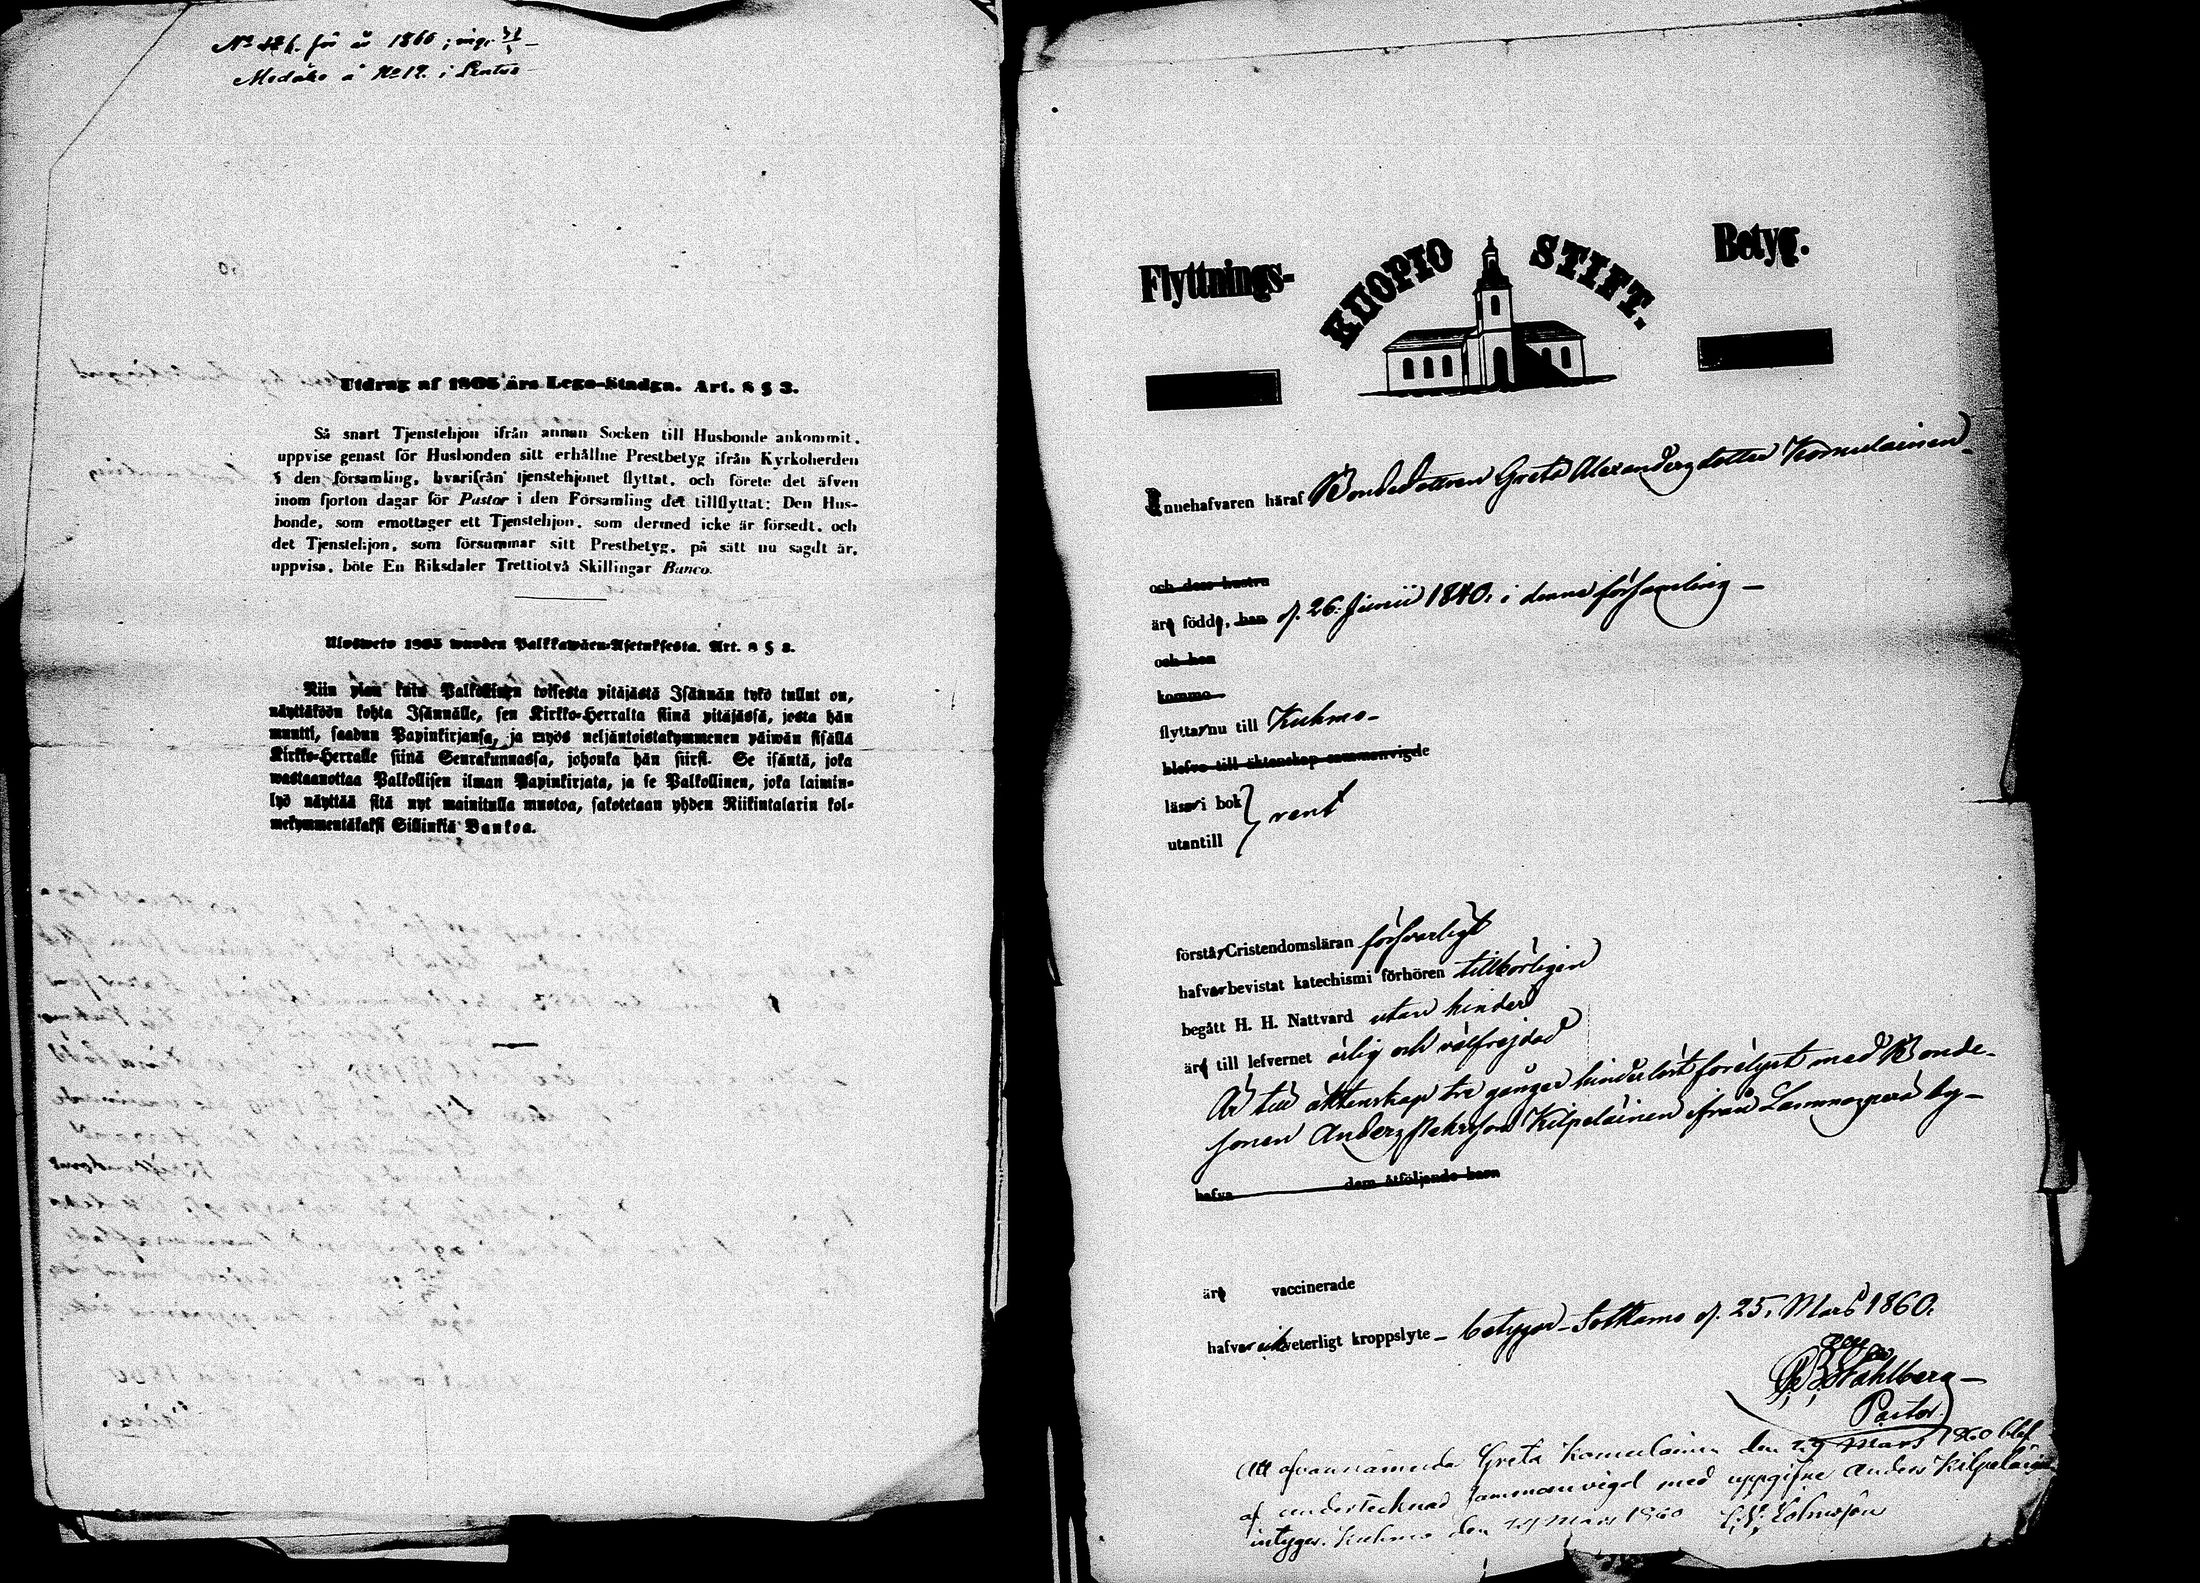 för år 1860
Utdrag af 1805 års Lego-Stadga. Art. 8 § 3.
Så snart Tjenstehjon ifrån annan Socken till Husbonde ankommit,
uppvise genast för Husbonden sitt erhållne Prestbetyg ifrån Kyrkoherden
i den församling, hvarifrån tjenstehjonet flyttat, och förete det äfven
inom fjorton dagar för Pastor i den Församling det tillflyttat: Den Hus-
bonde, som emottager ett Tjenstehjon, som dermed icke är försedt, och
det Tjenstehjon, som försummar sitt Prestbetyg, på sätt nu sagdt är,
uppvisa, böte En Riksdaler Trettiotvå Skillingar Banco.
Ulosweto 1805 wuoden Palkkawäen-Asetuksesta. Art. 8 § 3.
Niin pian kuin Palkollinen toisesta pitäjästä Isännän tykö tullut on,
näyttäköön kohta Isännälle, sen Kirkko-Herralta siinä pitäjässä, josta hän
muutti, saadun Papinkirjansa, ja myös neljäntoistakymmenen päiwän sisällä
Kirkko-Herralle siinä Seurakunnassa, johonka hän siirsi. Se isäntä, joka
wastaanottaa Palkollisen ilman Papinkirjata, ja se Palkollinen, joka laimin-
lyö näyttää sitä nyt mainitulla muotoa, sakotetaan yhden Riikintalarin kol-
mekymmentäkaksi Sillinkiä Bankoa.
Flyttnings- KUOPIO STIFT. Betyg.
Innehafvaren häraf Bondedottren Greta Alexandersdotter Komulainen
och dess hustru
äro födde, han d. 26. Junii 1840. i denna församling –
och hon
komme
flytta nu till Kuhmo –
blefvo till äktenskap sammanvigde
läsa i bok
utantill } rent
förstå Cristendomsläran försvarligt
hafva bevistat katechismi förhören tillbörligen
begått H. H. Nattvard utan hinder
äro till lefvernet ärlig och välfrejdad
Är till äktenskap tre gånger hinderlöst förelyst med Bonde-
sonen Anders Kilpeläinen ifrån Lammasperä by –
hafva dem åtföljande barn
äro vaccinerade
hafva veterligt kroppslyte – betygar – Sotkamo d. 25. Mars 1860.
Ståhlberg –
Pastor.
Att ofvannämnda Greta Komulainen den 29 Mars 1860 blef
af undertecknad sammanvigd med uppgifne Anders Kilpeläinen
intygar. Kuhmo den 29 Mars 1860